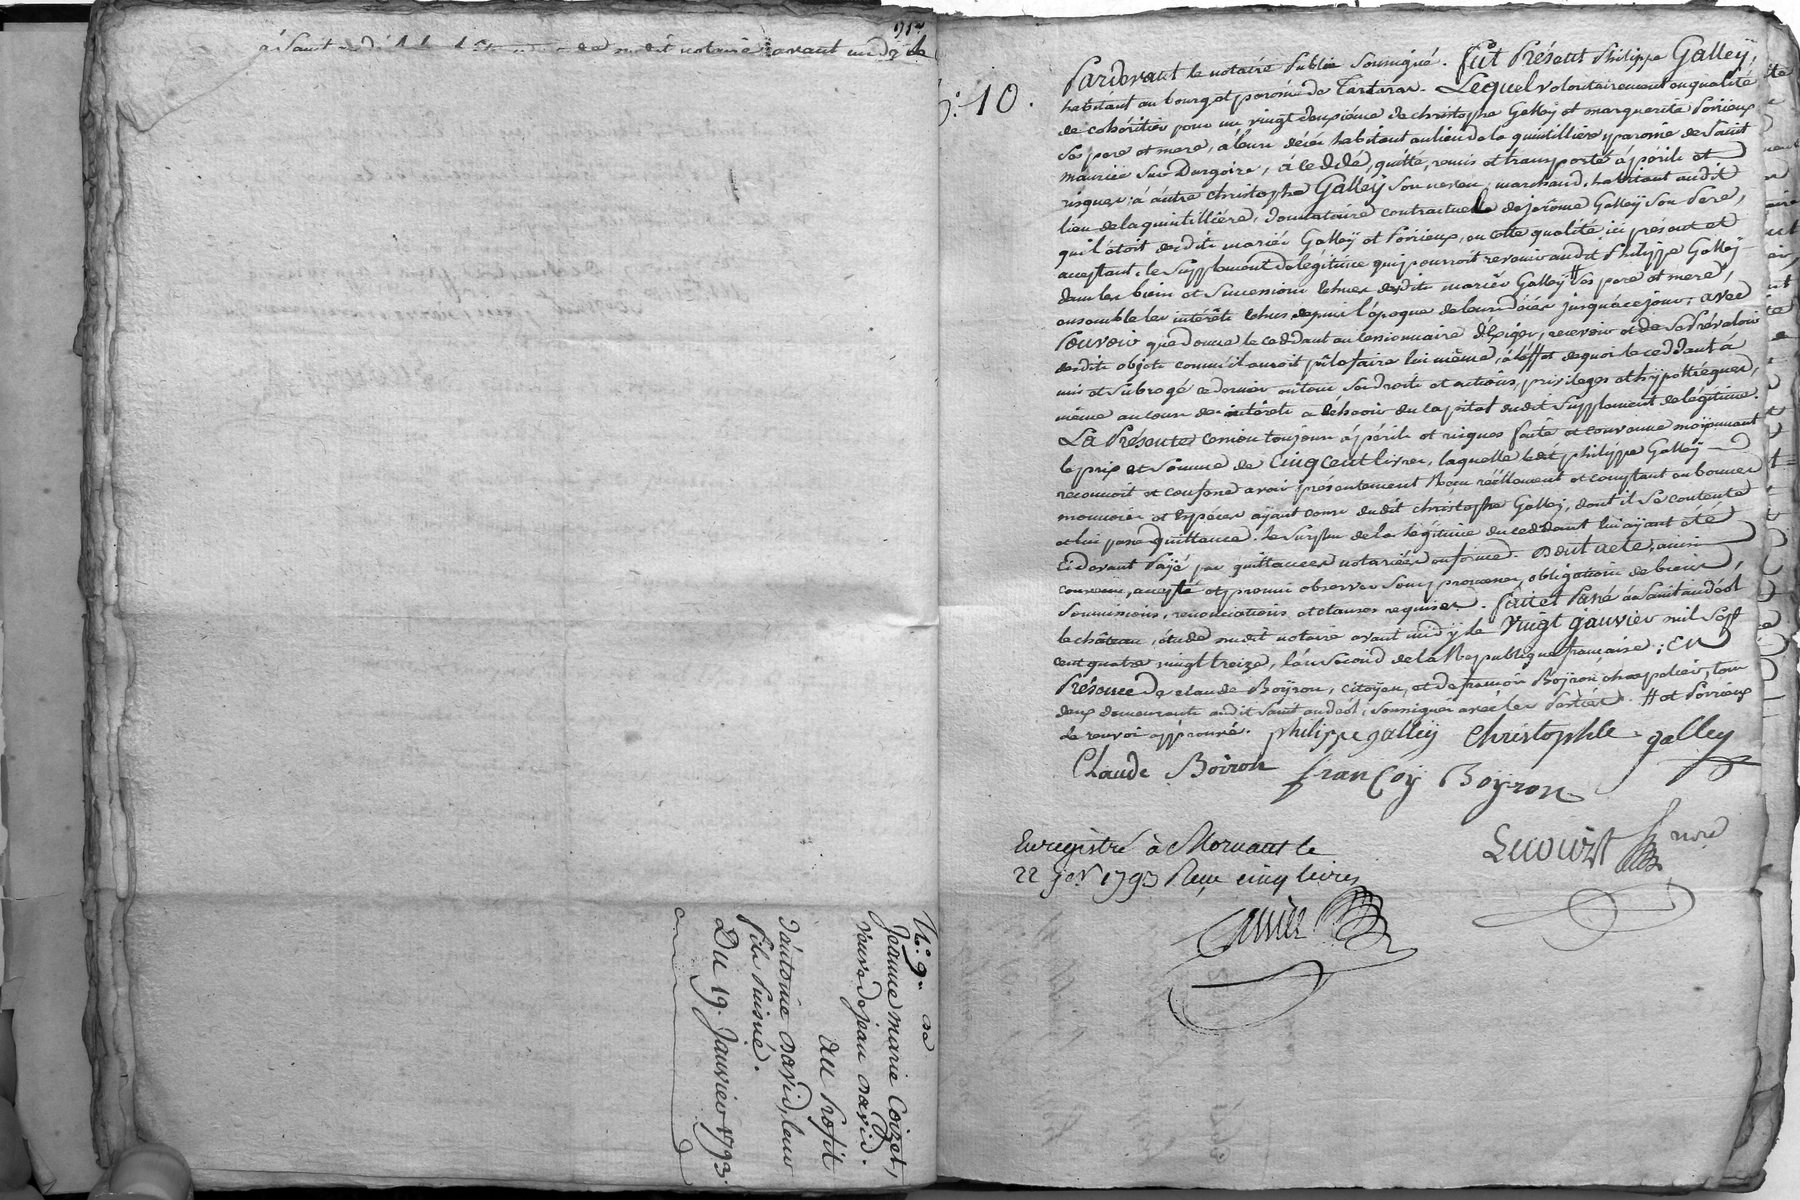 avant midy le
N.° 9.
Jeanne marie Coizet,
veuve de jean david.
au Profit
d'antoine david, leur
fils Puisné.
Du 19. Janvier 1793.
10.
Pardevant le notaire Public soussigné. fut Présent Philippe Galleÿ,
habitant au bourg et paroisse de Tartaras. Lequel volontairement en qualité
de cohéritier pour un vingt deuxième de christophe Galleÿ et marguerite Poirieux
ses pere et mere, à leur décès habitant au lieu de la quintillière, paroisse de Saint
maurice sur Dargoire, à cédé, quitté, remis et transporté à périls et
risques, à autre christophe Galleÿ son neveu, marchand, habitant audit
lieu de la quintillière, donnataire contractuelle de jerôme Galleÿ son Pere,
qui l'étoit desdits mariés Galleÿ et Poirieux, en cette qualité ici présent et
aceptant, le supplément de légitime qui pourroit revenir audit Philippe Galleÿ
dans les biens et successions échues desdits mariés Galleÿ # ses pere et mere,
ensemble les intérêts échus depuis l'époque de leurs décès jusqu'à ce jour, avec
Pouvoir que donne le ceddant au cessionnaire d'Exiger, recevoir et de se Prévaloir
desdits objets comme il auroit pû le faire lui même, à l'éffet de quoi le ceddant à
mis et subrogé ce dernier en tous ses droits et actions, privileges et hÿpotteques,
même au cours des intérêts à échoir du capital dudit supplement de légitime.
La Présente cession toujours à périls et risques faite et convenue moÿennant
le prix et somme de cinq cent livres, laquelle ledit philippe Galleÿ
reconnoit et confesse avoir présentement Recu réèllement et comptant en bonnes
monnoies et Espéces aÿant cours dudit christophe Galleÿ, dont il se contente
et lui passe quittance. Le surplus de la Légitime du ceddant lui aÿant été
Cidevant Païé par quittances notariées en forme. Dont acte, ainsi
convenu, acepté et promis observer sous promesses, obligation de biens,
soumissions, renonciations et clauses requises. fait et Passé à Saint andéol
le château, étude dudit notaire avant midÿ le vingt janvier mil sept
cent quatre vingt treize, l'an second de la Republique française; EN
Présence de claude Boÿron, citoyen, et de françois Boÿron chapelier, tous
deux demeurants audit saint andéol, soussignés avec les Parties. # et Poirieux
le renvoi approuvé. philippe galley Christophle galley
Claude Boiron françoy Boyron
Enregistré à Mornant le
22 jer 1793 Reçu cinq livres